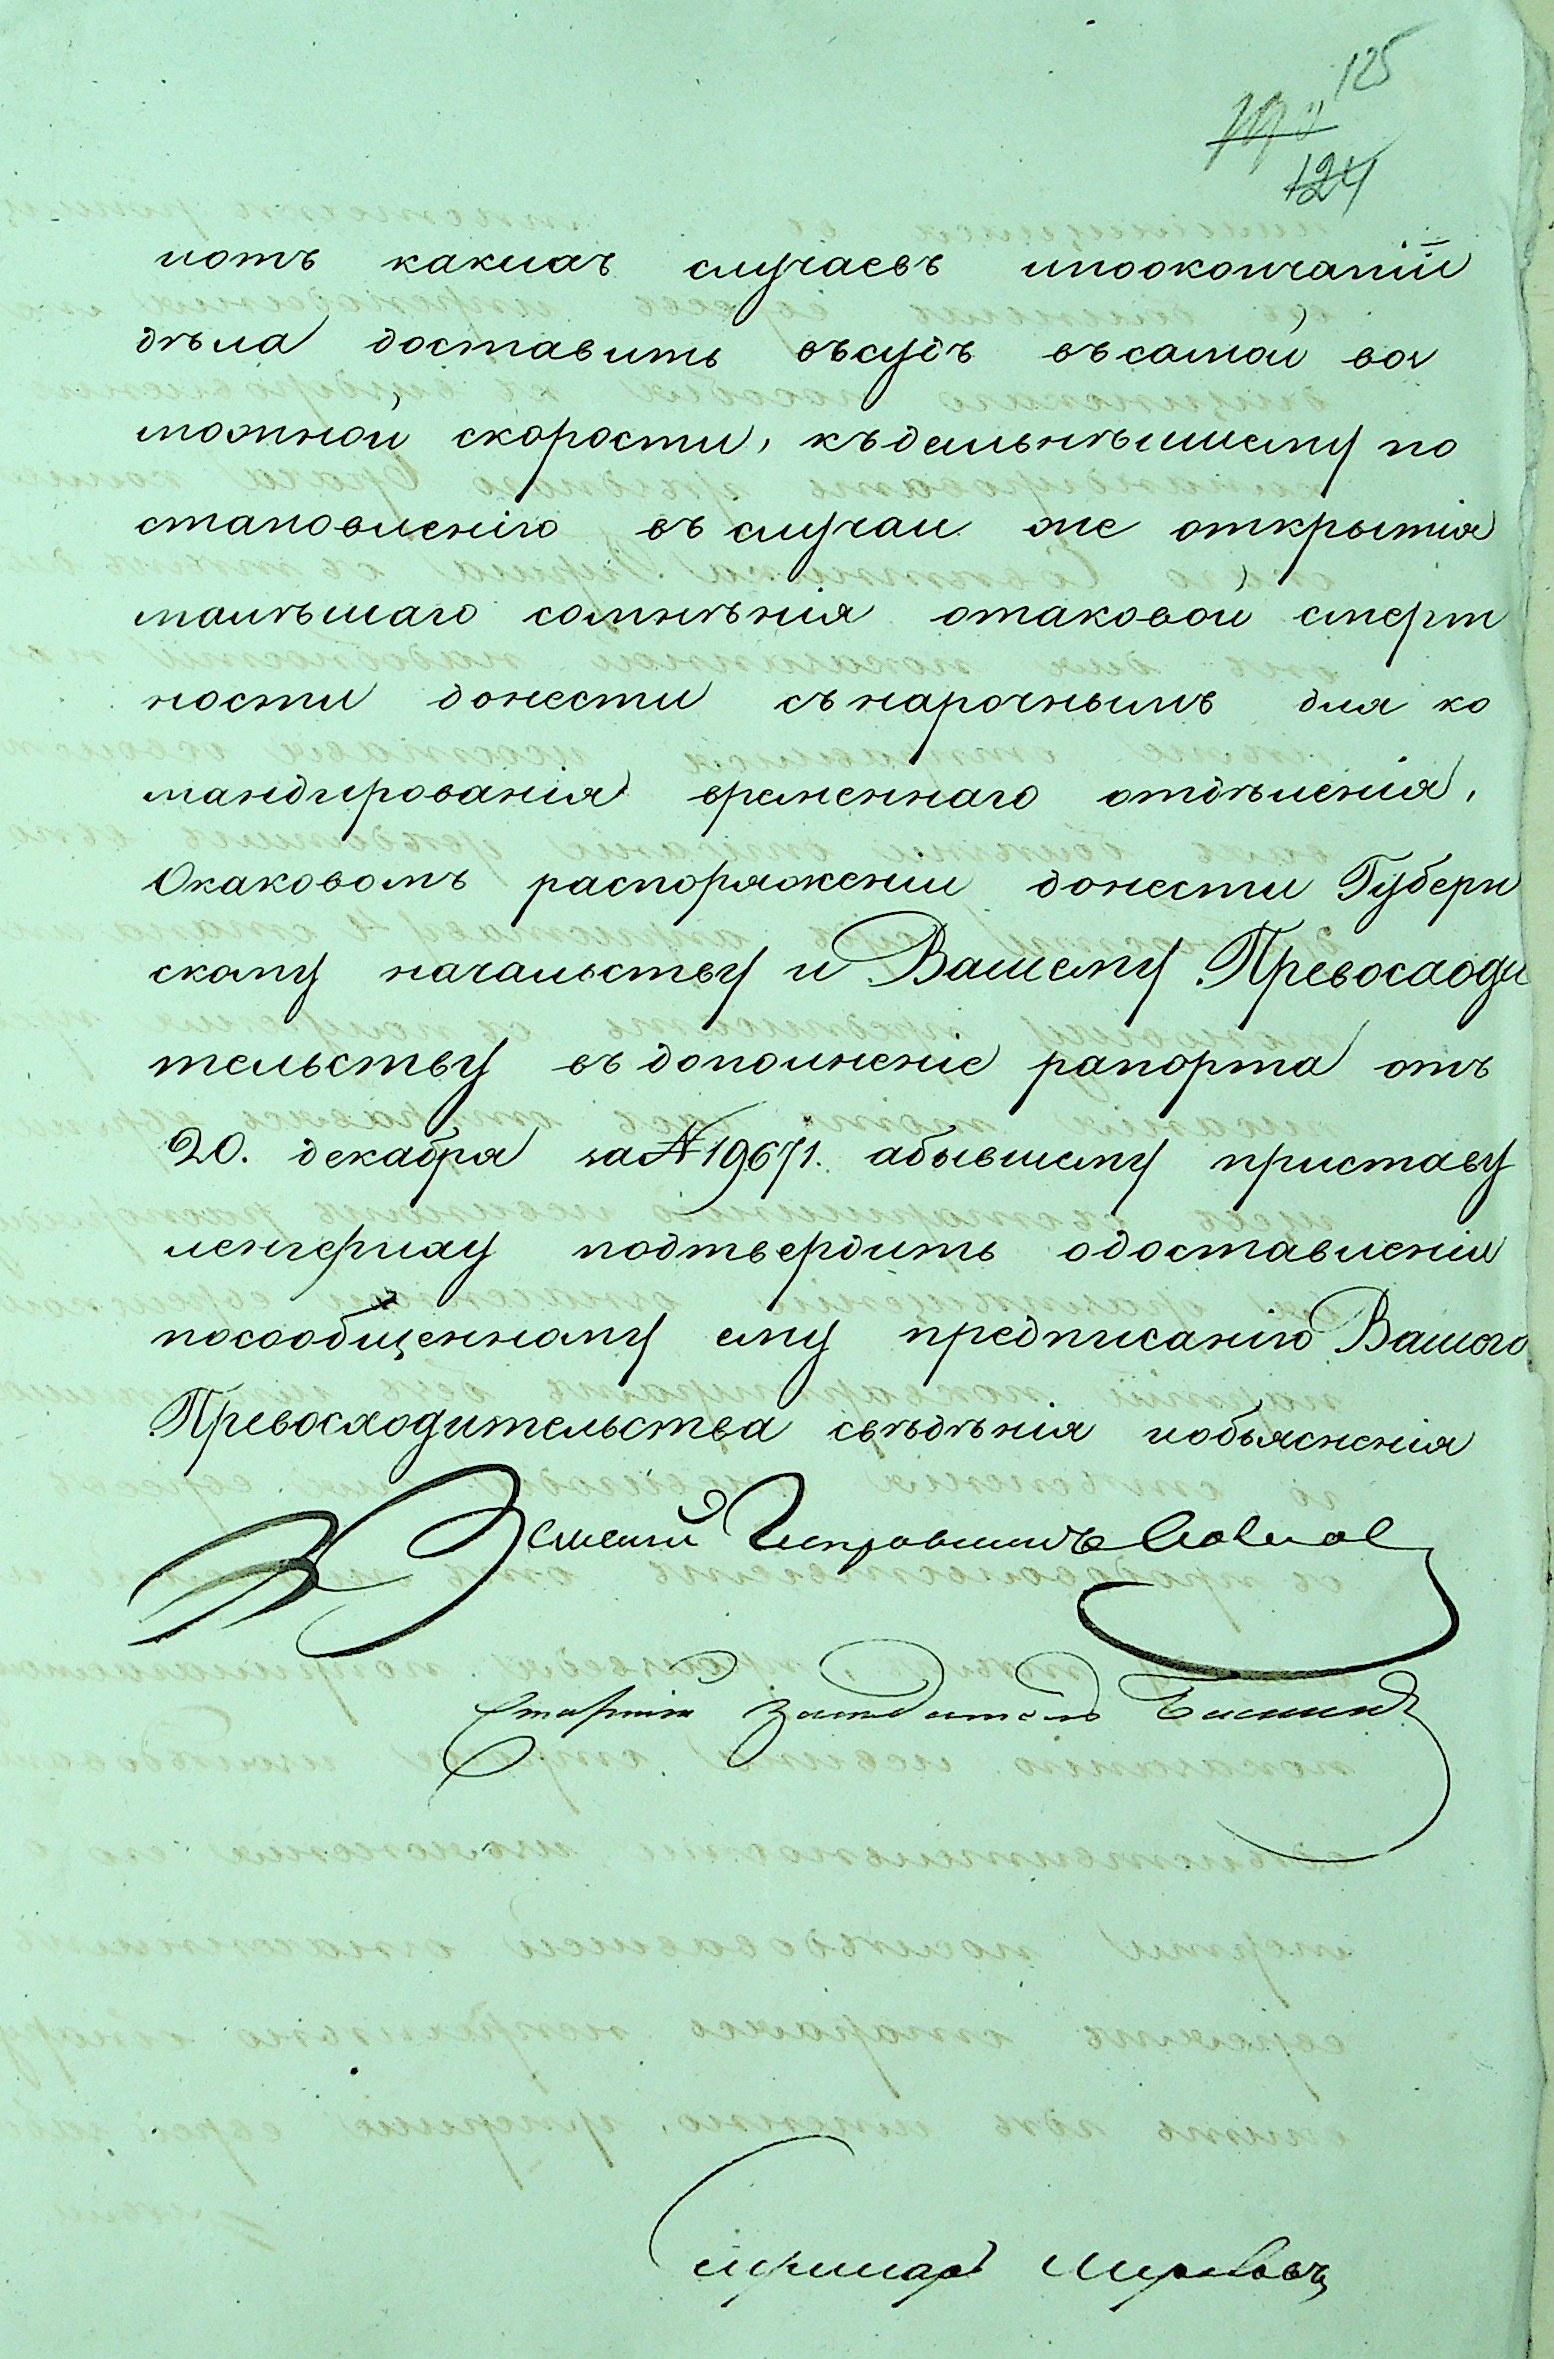 125
124
иотъ какихъ случаевъ ипоокончаніи
дѣла доставить въсудъ въсамой воз
можной скорости, къдальнѣишему по
становленію въ случаи же открытія
малѣишаго сомнѣнія отаковой смерт
ности донести съ нарочнымъ для ко
мандированія временнаго отдѣленія,
Окаковомъ распоряжении донести Губерн
скому начальству и Вашему Превосходи
тельству въ дополненіе рапорта отъ
20. декабря за № 19671. абывшему приставу
подтвердить одоставлении
посообщенному ему предписанію Вашего
Превосходительства свѣдѣнія иобьясненія
Земский Исправникъ
Старшій Засѣдатель